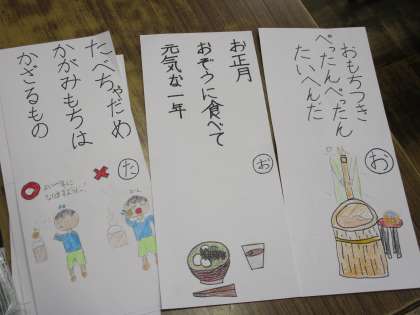 おもちつき
ぺったんぺったん
たいへんだ
お
お正月
おぞうに食べて
元気な一年
お
たべちゃだめ
かがみもちは
かざるもの
た